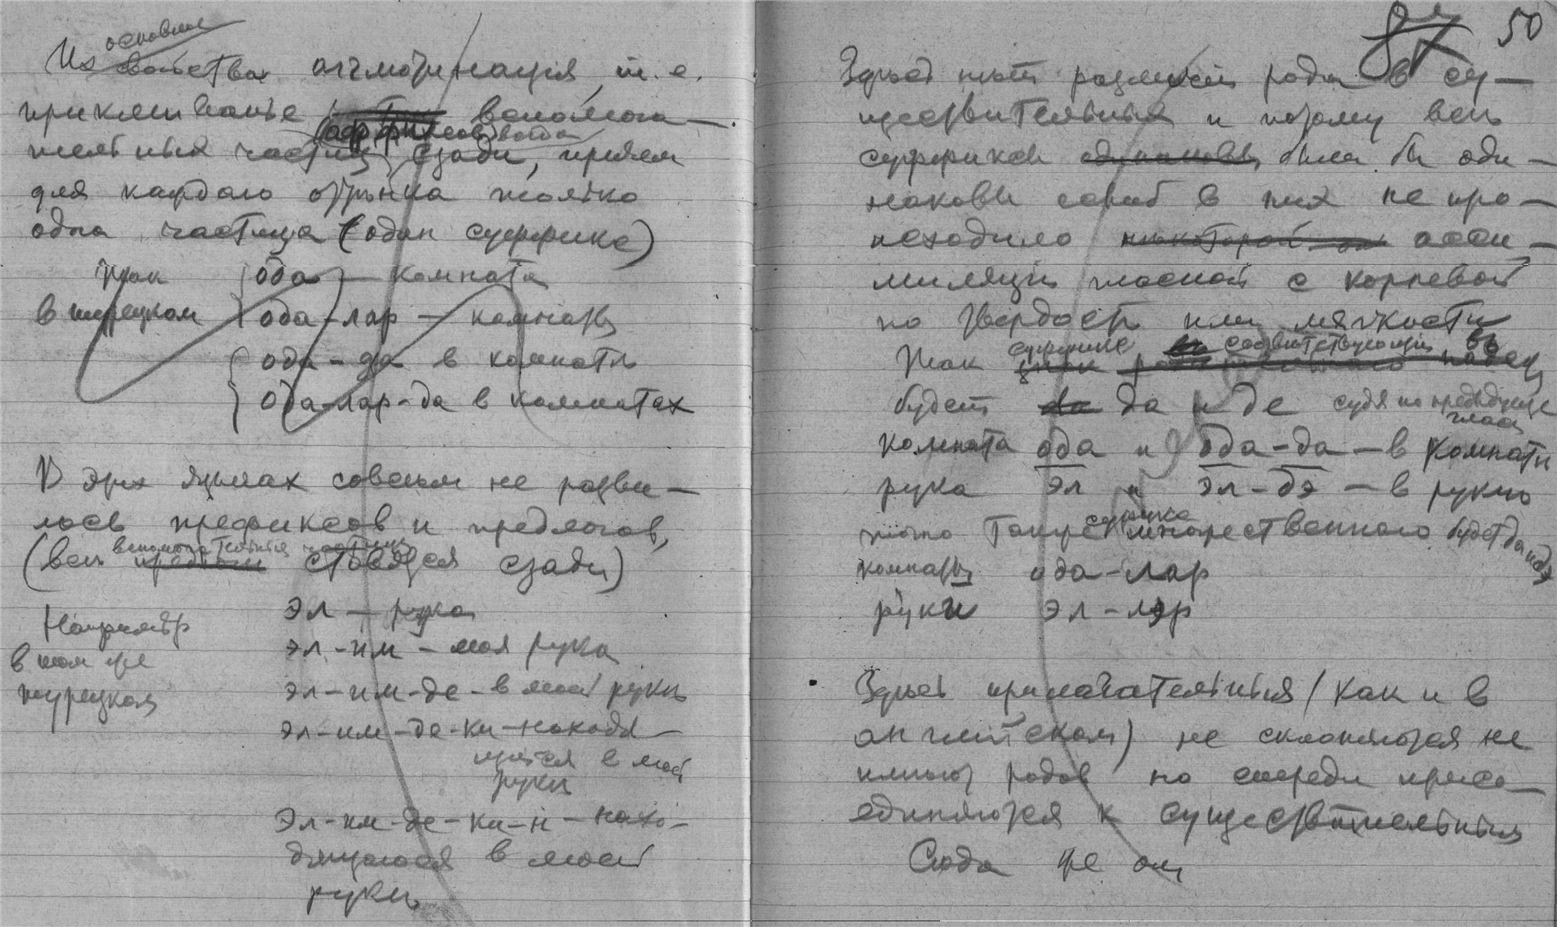 основное
Их свойство агглютинация, т. е.
приклеиванье вспомога-
(аффиксов) всегда
тельных частиц сзади, причем
для каждого оттѣнка только
одна частица (один суффикс)
Так ода — комната
в турецком ода-лар — комнаты
ода-да в комнатѣ
ода-лар-да в комнатах
В этих языках совсѣм не разви-
лось префиксов и предлогов,
вспомогательныя частицы
(всѣ ставятся сзади)
Напримѣр эл — рука
в том же эл-им — моя рука
турецком эл-им-де — в моей рукѣ
эл-им-де-ки — находя-
щийся в моей
рукѣ
эл-им-де-ки-н — нахо-
дящагося в моей
рукѣ
50
Здѣсь нѣт различій рода в су-
ществительных и потому всѣ
суффиксы были бы оди-
наковы если б в них не про-
исходило асси-
миляціи гласной с корневой
по твердости или мягкости
суффикс соответствующій въ
Так
будет да и де судя по предъидущей
гласн
комната ода и ода-да — в комнатѣ
рука эл и эл-дэ — в рукѣ
суффикс
точно также множественного будет
комнаты ода-лар
руки эл-лэр
Здѣсь прилагательныя (как и в
английском) не склоняются не
имѣют родов но спереди присо-
единяются к существительным
Сюда же от